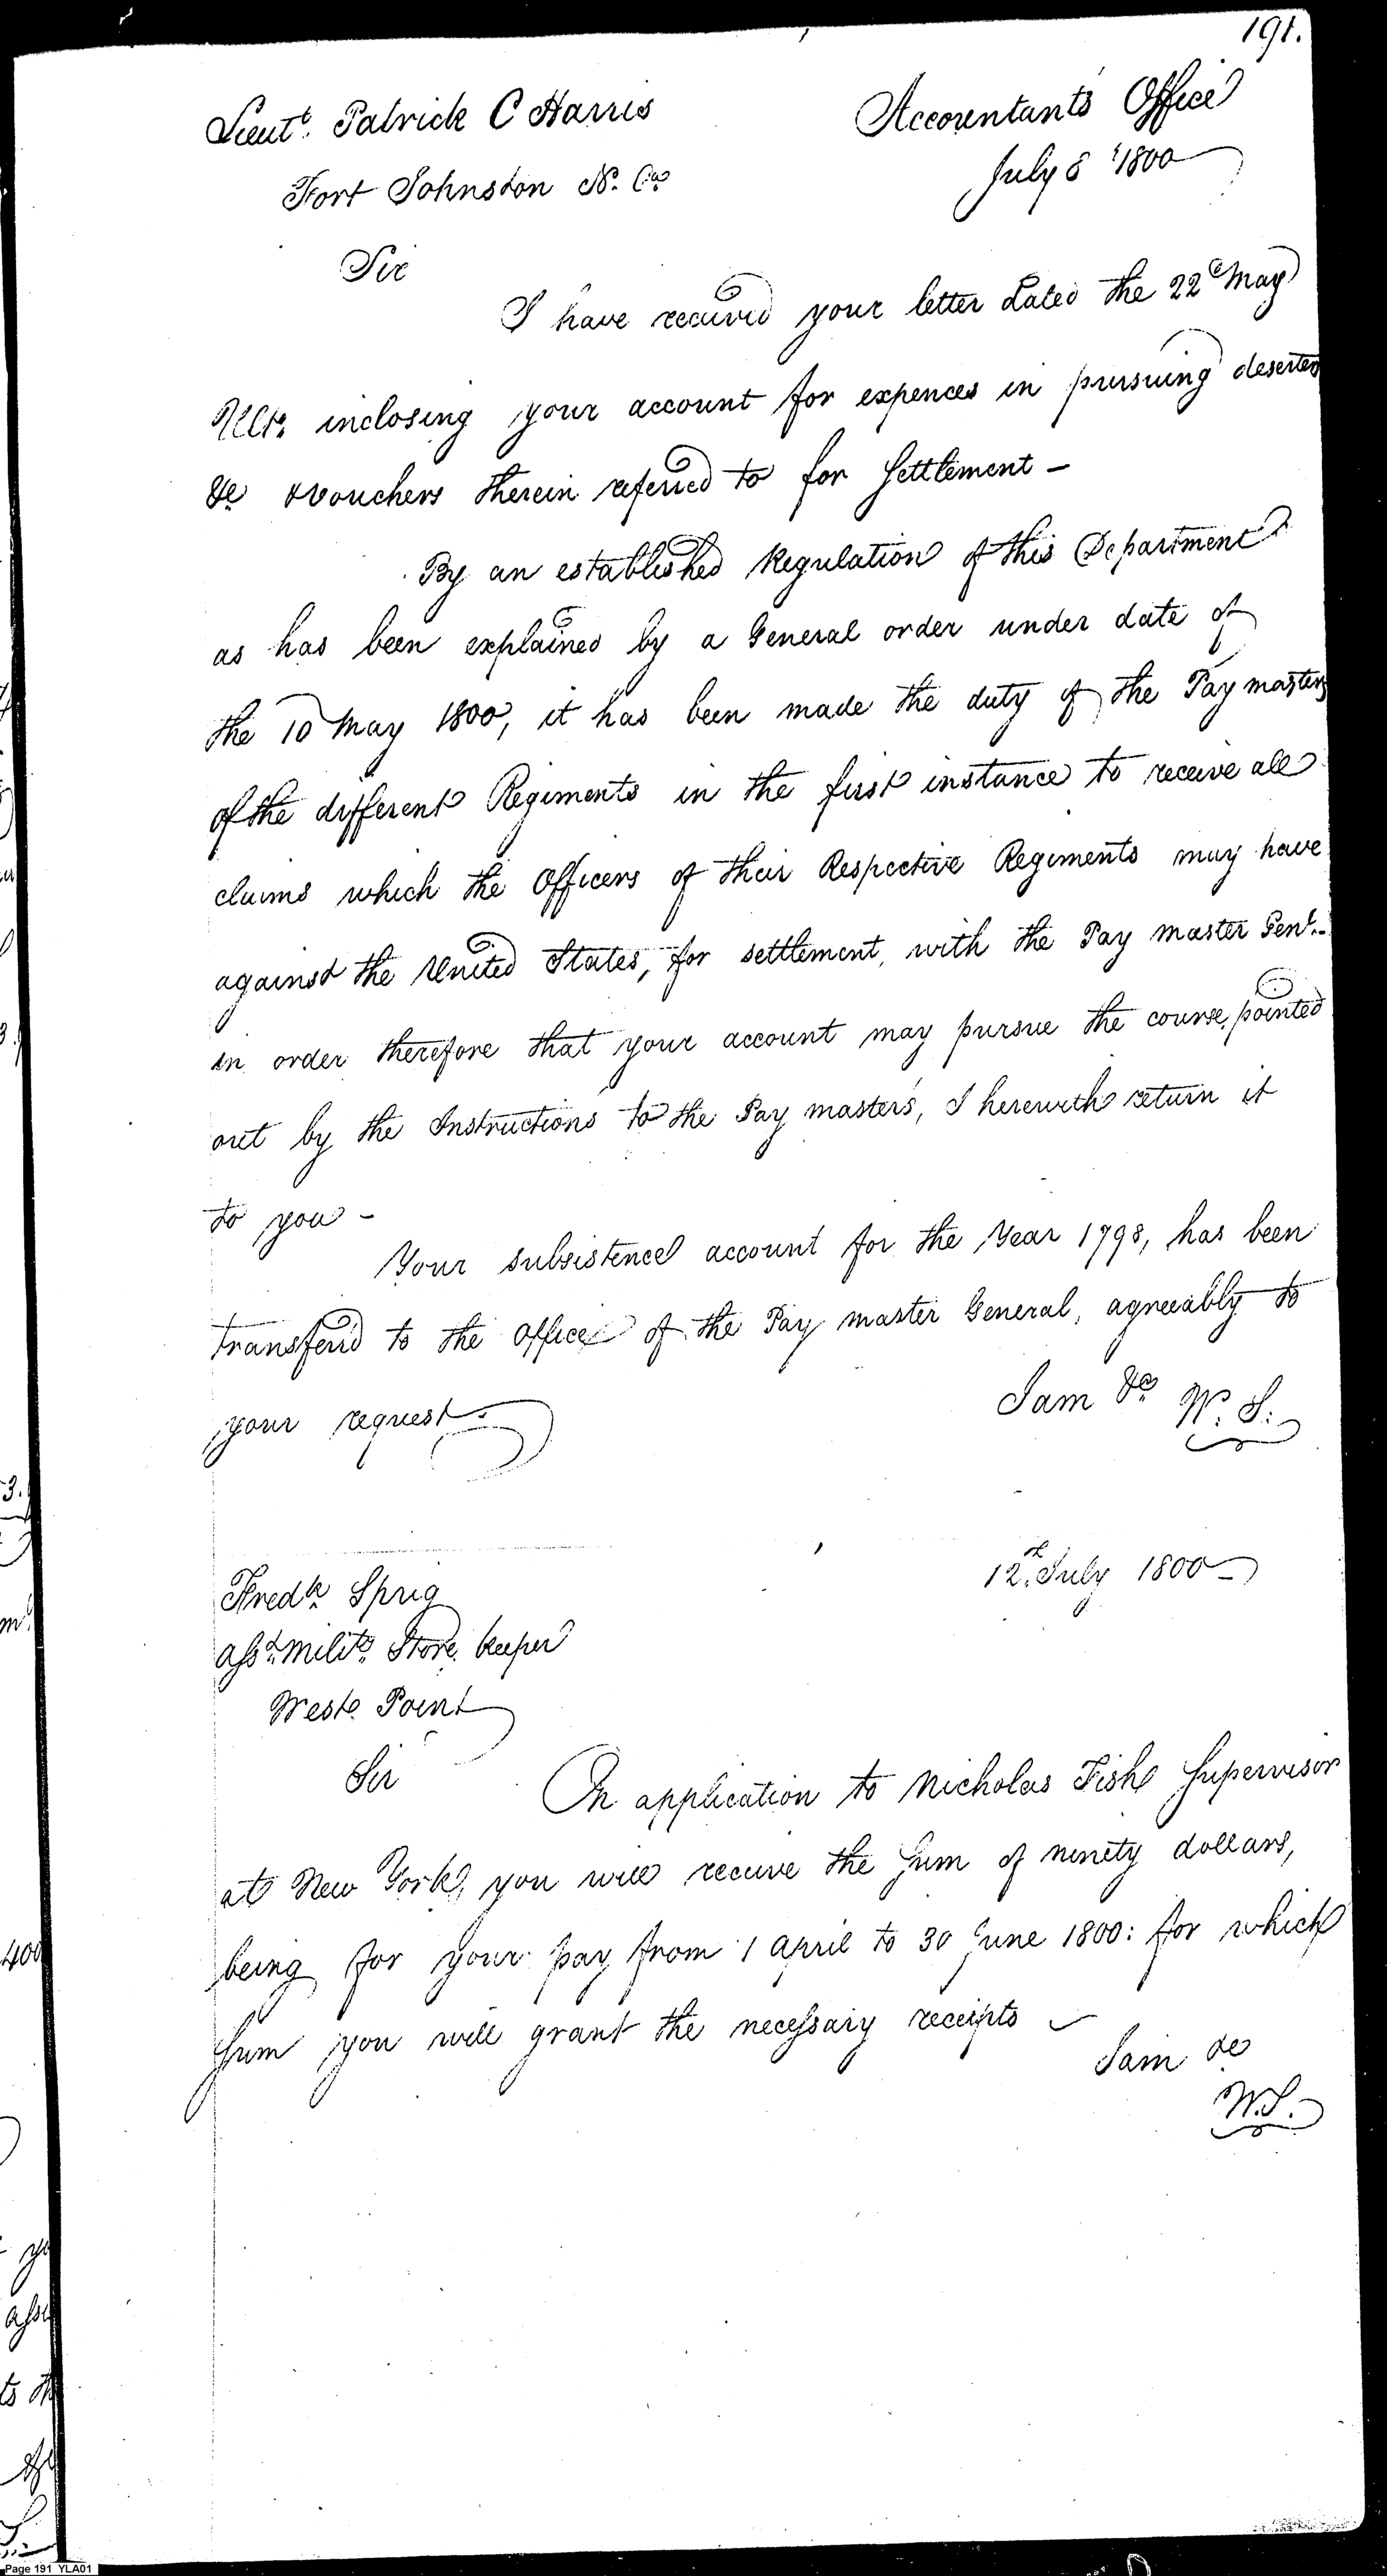 191.
Lieut. Patrick C Harris
Accountant's Office
Fort Johnston N. Ca
July 8 1800
Sir
I have received your letter dated the 22d May
Ulto. inclosing your account for expences in pursuing deserters
&c & vouchers therein referred to for Settlement -
By an established Regulation of this Department
as has been explained by a General order under date of
the 10 May 1800, it has been made the duty of the Pay masters
of the different Regiments in the first instance to receive all
claims which the Officers of their Respective Regiments may have
against the United States, for settlement, with the Pay master Genl.
in order therefore that your account may pursue the course, pointed
out by the Instructions to the Pay masters, I herewith return it
to you -
Your subsistence account for the Year 1798, has been
transferd to the office of the Pay master General, agreeably to
your request.
I am &c W. S.
12th July 1800
Fredk. Sprig
Asst. mility. Store keeper
West Point
Sir
On application to Nicholas Fish Supervisor
at New York, you will receive the sum of ninety dollars,
being for your pay from 1 april to 30 June 1800: for which
sum you will grant the necessary receipts -
I am &c
W.S.
Page 191 YLA01